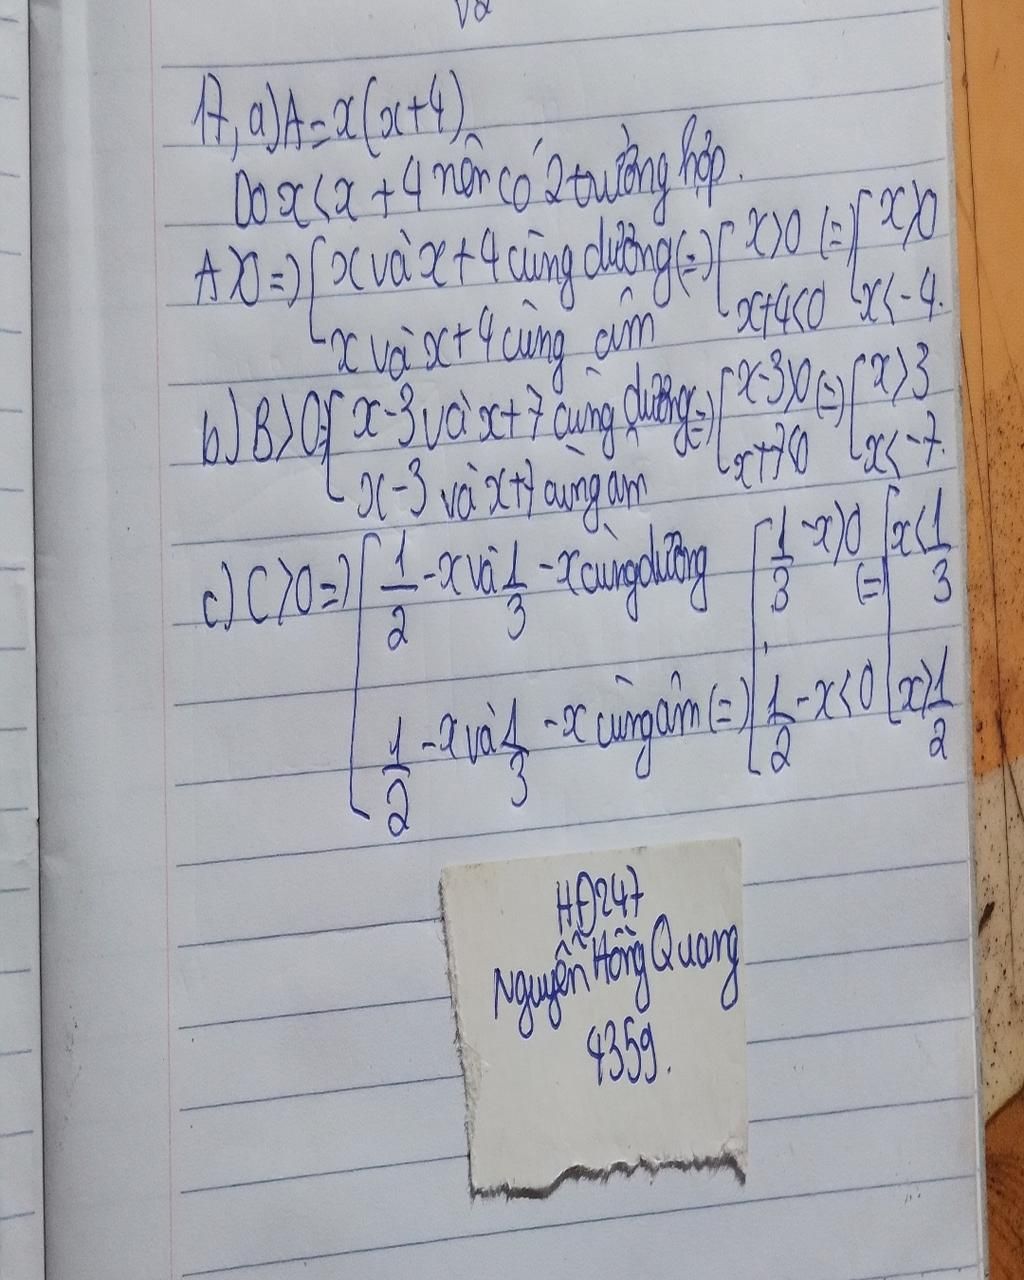 17, a) A = x(x+4)
Do x < x + 4 nên có 2 trường hợp.
A > 0 => [ x và x + 4 cùng dương (=) [ x > 0 (=) [ x > 0
x và x + 4 cùng âm x+4<0 x < -4.
b) B > 0 => [ x-3 và x+7 cùng dương (=) [ x-3>0 (=) [ x > 3
x-3 và x+7 cùng âm x+7<0 x < -7.
c) C > 0 => [ 1/2 - x và 1/3 - x cùng dương [ 1/3 - x > 0 (=) [ x < 1/3
1/2 - x và 1/3 - x cùng âm (=) 1/2 - x < 0 x > 1/2
HĐ247
Nguyễn Hồng Quang
4359.